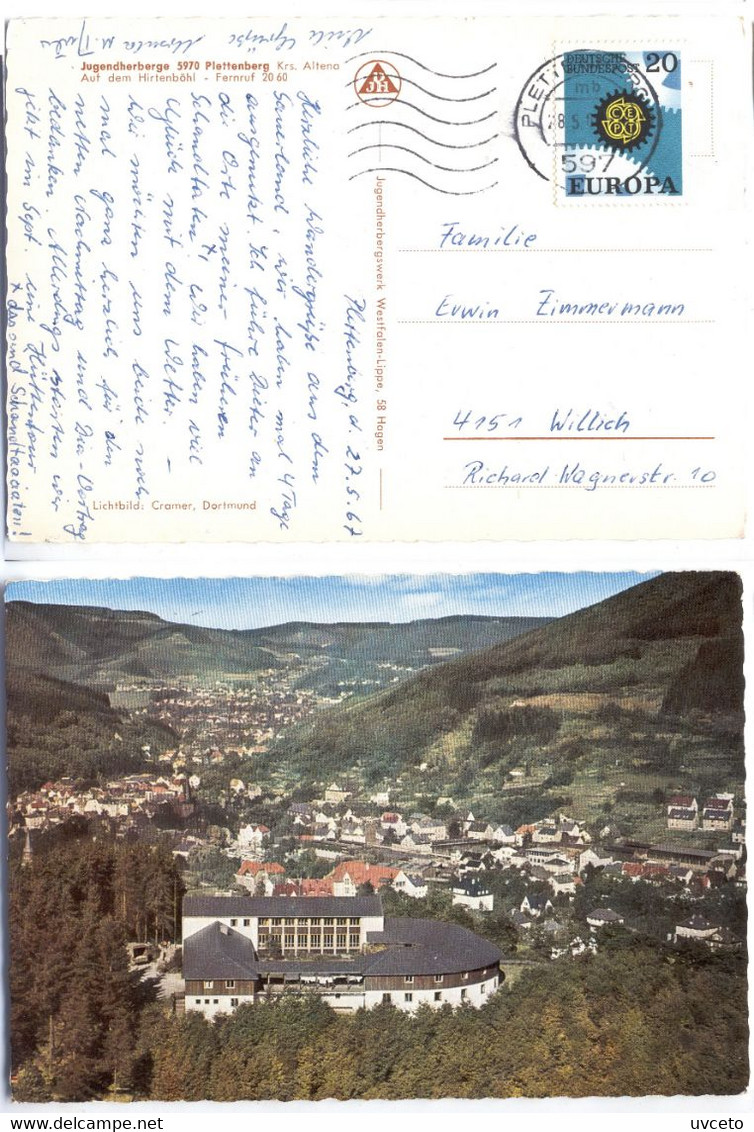 Jugendherberge 5970 Plettenberg Krs. Altena
Auf dem Hirtenböhl - Fernruf 20 60
JH
Plettenberg, d. 27.5.67
Herzliche Wandergrüße aus dem
Sauerland, wir haben mal 4 Tage
ausgenutzt. Ich führe Dieter an
die Orte meiner früheren
Schandtaten x, wir haben viel
Glück mit dem Wetter. –
Wir möchten uns beide noch
mal ganz herzlich für den
netten Nachmittag und Dia-Vortrag
bedanken. Allerdings starten wir
jetzt im Sept. eine Hüttentour
x das sind Schandtaaaten!
Viele Grüße
Ursula u.
Lichtbild: Cramer, Dortmund
Jugendherbergswerk Westfalen-Lippe, 58 Hagen
DEUTSCHE
BUNDESPOST
20
CEPT
EUROPA
PLETT
mb
28.5.
597
Familie
Erwin Zimmermann
4151 Willich
Richard-Wagnerstr. 10
delcampe.net
uvceto